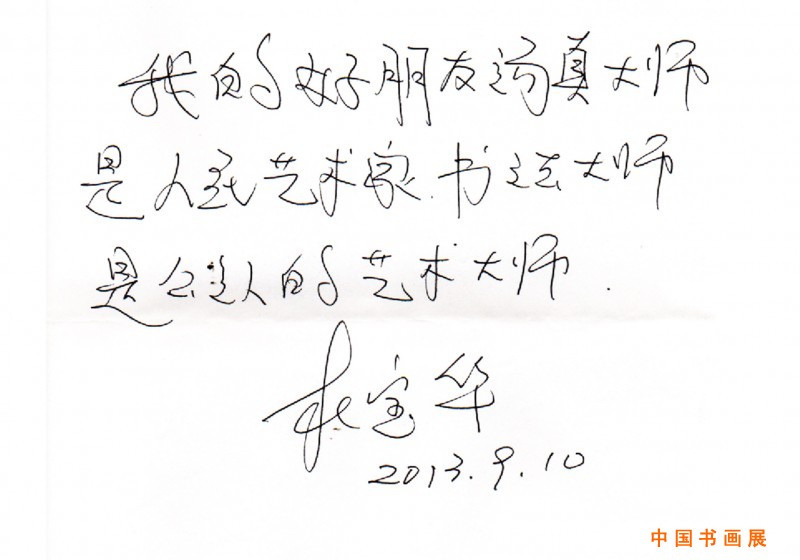 我的好朋友汤真大师
是人民艺术家.书法大师
是公认的艺术大师.
宝华
2013.9.10
中国书画展